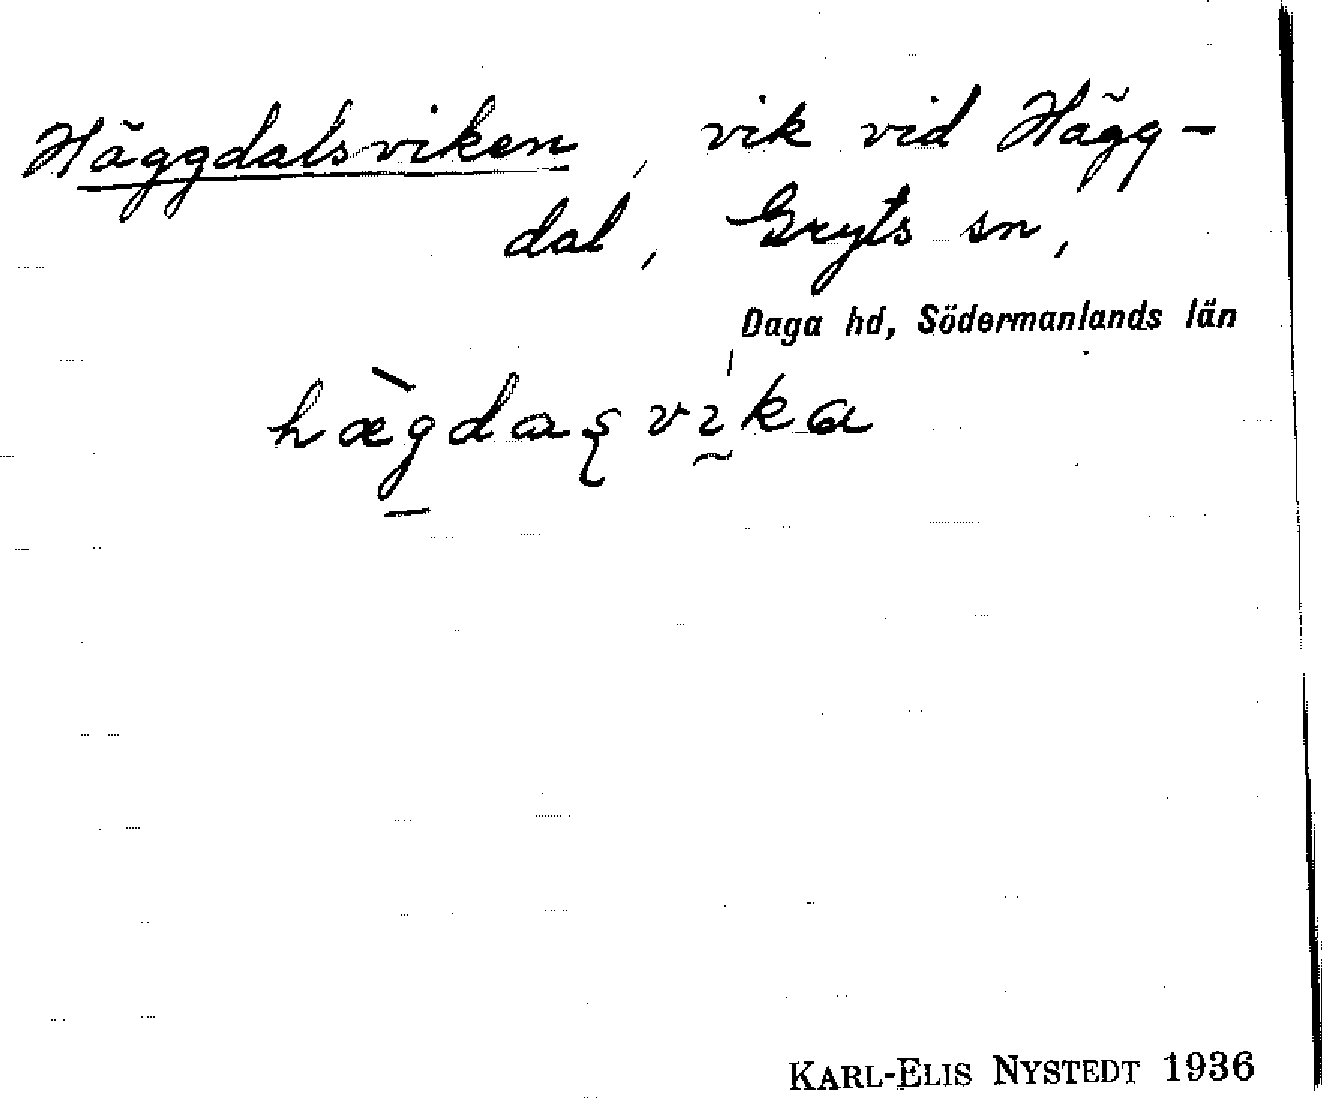 Häggdalsviken, vik vid Hägg-
dal, Gryts sn,
Daga hd, Södermanlands län
hæ̀gdaʂvı̍ka
KARL-ELIS NYSTEDT 1936